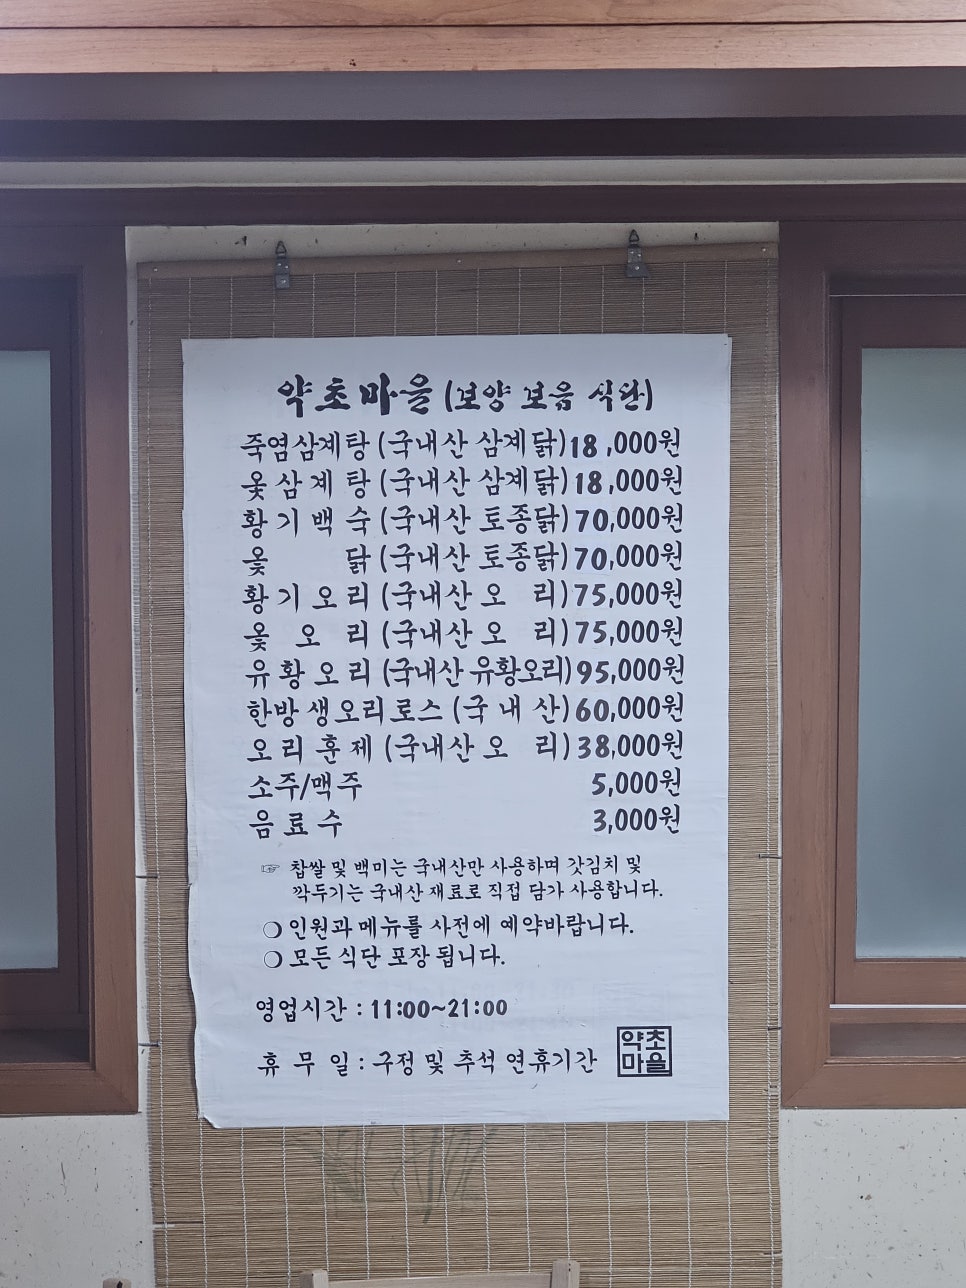 약초마을 (보양 보음 식단)
죽염삼계탕 (국내산 삼계닭) 18,000원
옻삼계탕 (국내산 삼계닭) 18,000원
황기백숙 (국내산 토종닭) 70,000원
옻 닭 (국내산 토종닭) 70,000원
황기오리 (국내산 오 리) 75,000원
옻 오 리 (국내산 오 리) 75,000원
유황오리 (국내산 유황오리) 95,000원
한방생오리로스 (국 내 산) 60,000원
오리훈제 (국내산 오 리) 38,000원
소주/맥주 5,000원
음료수 3,000원
☞ 찹쌀 및 백미는 국내산만 사용하며 갓김치 및
깍두기는 국내산 재료로 직접 담가 사용합니다.
❍ 인원과 메뉴를 사전에 예약바랍니다.
❍ 모든 식단 포장 됩니다.
영업시간 : 11:00~21:00
휴 무 일 : 구정 및 추석 연휴기간
약초
마을